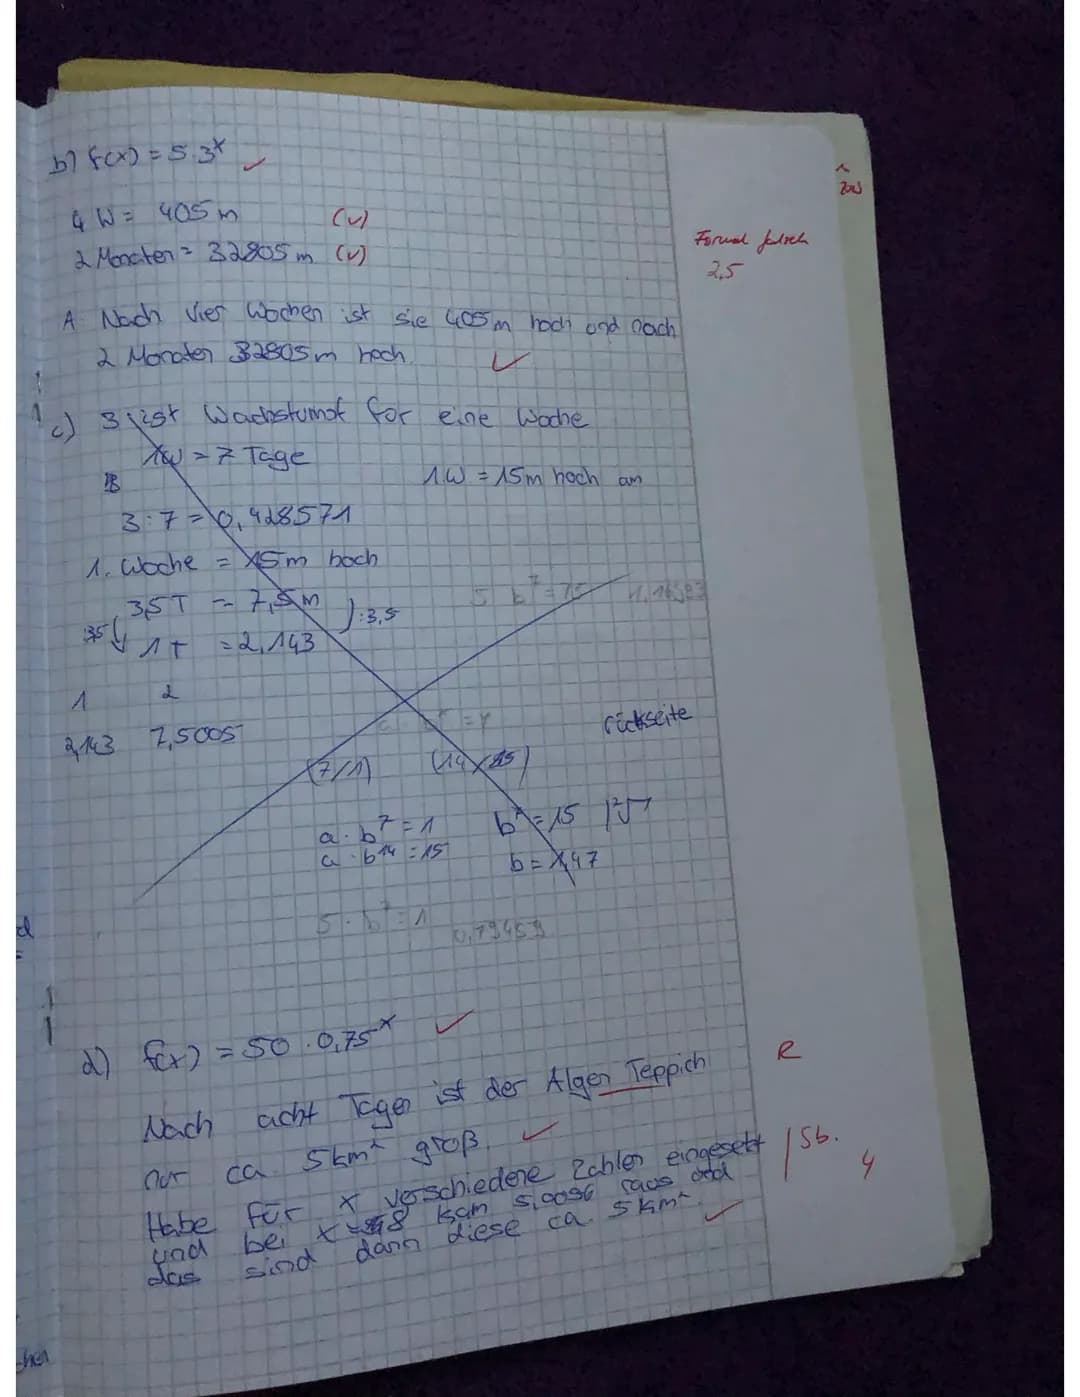 b) f(x) = 5·3^x ✓
4 W = 405 m (✓)
2 Monaten = 32805 m (✓)
Formal falsch
2,5
A Nach vier Wochen ist sie 405 m hoch und nach
2 Monaten 32805 m hoch. ✓
c) 3 ist für eine Woche
1W = 7 Tage
1.W = 15m hoch am
3:7 = 0,428571
1. Woche = 15m hoch
3,5T = 7,5m
):3,5
1T = 2,143
5 b^7 = 15
1 2
2,143 7,5005
rückseite
(7/1)
a · b^7 = 1
a · b^14 = 15
b = 1,47
5 · b^7 = 1
0,79459
d) f(x) = 50 · 0,75^x ✓
Nach acht Tagen ist der Algen Teppich
R
nur ca. 5km² groß. ✓
Habe für x verschiedene Zahlen eingesetzt
/ Sb.
4
und bei x = 8 kam 5,0056 raus und
das sind dann diese ca. 5 km². ✓